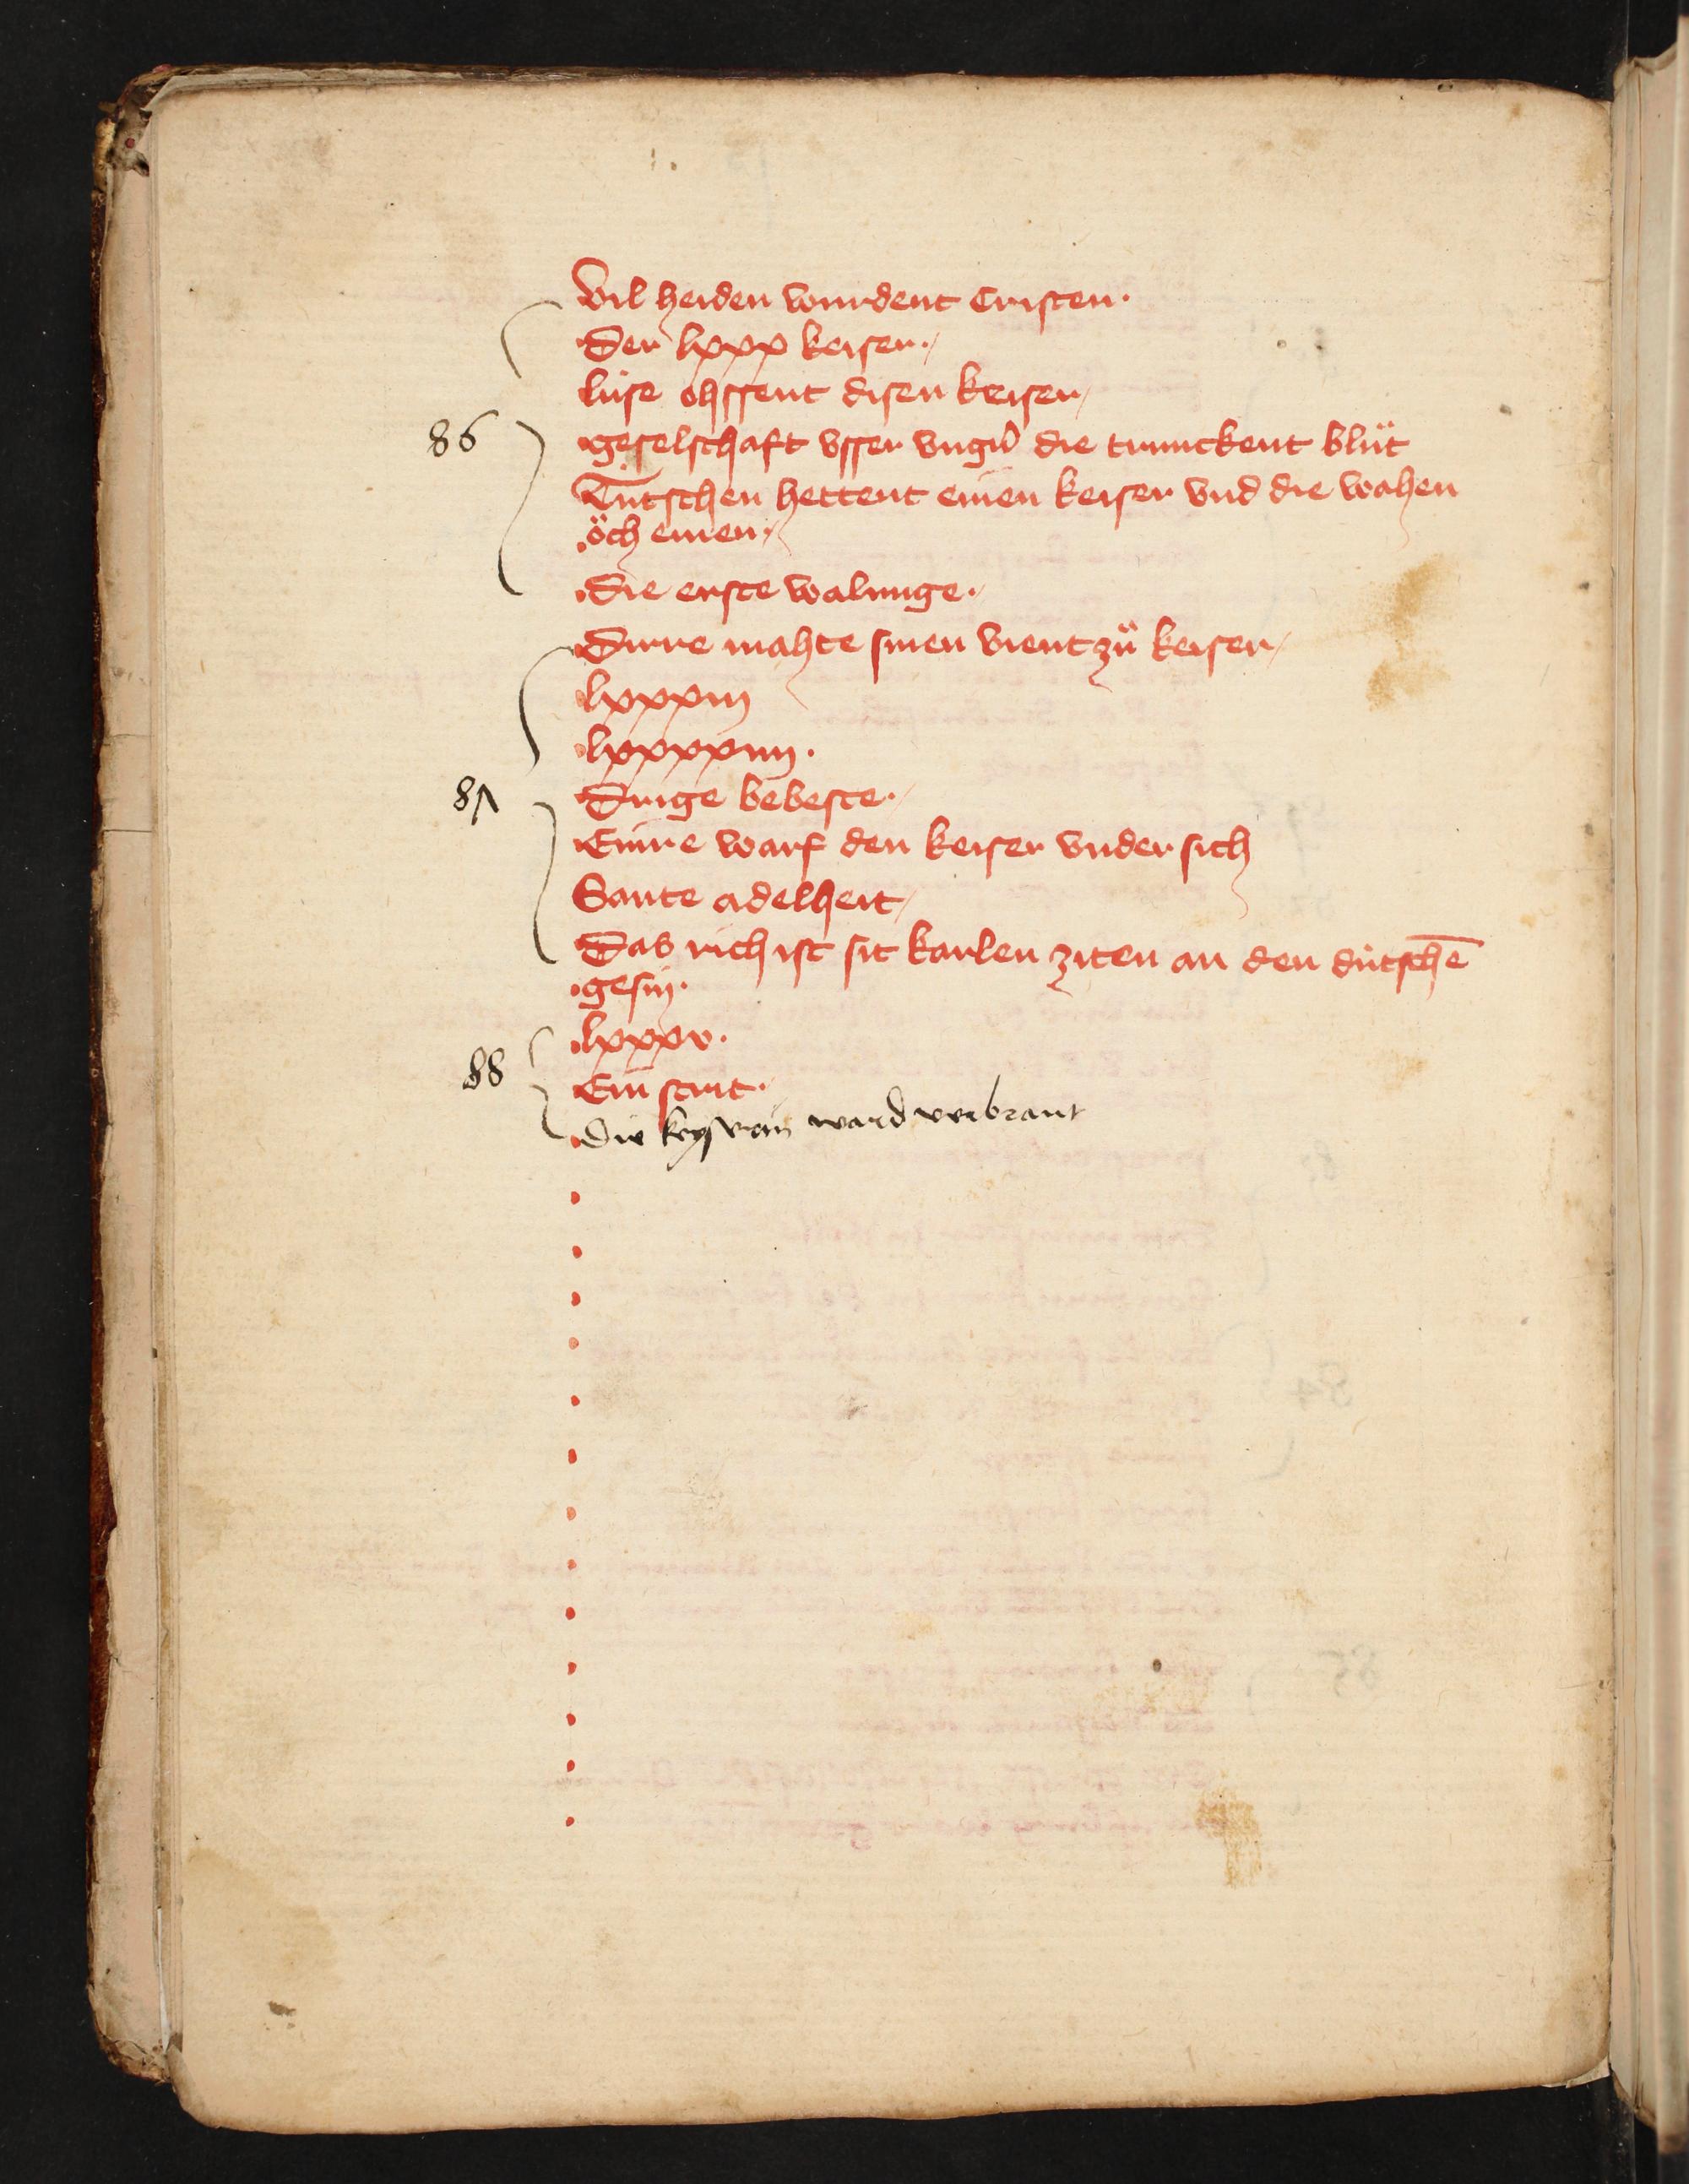 Vil heiden wurdent Cristen.
Der lxxx keiser.
lúse ossent disen keiser
86
geselschaft vsser vngerͦ die trunckent blůt
Tútschen hettent einen keiser vnd die walhen
öch einen.
Die erste walunge.
Dirre mahte sinen vient zů keiser
lxxxiij
lxxxxiiij.
87
Drige bebeste.
Einre warf den keiser vnder sich
Sante adelheit
Das rich ist sit karlen ziten an den dútschē
gesin.
lxxxv.
88
Ein strit.
Die keyserin ward verbrant